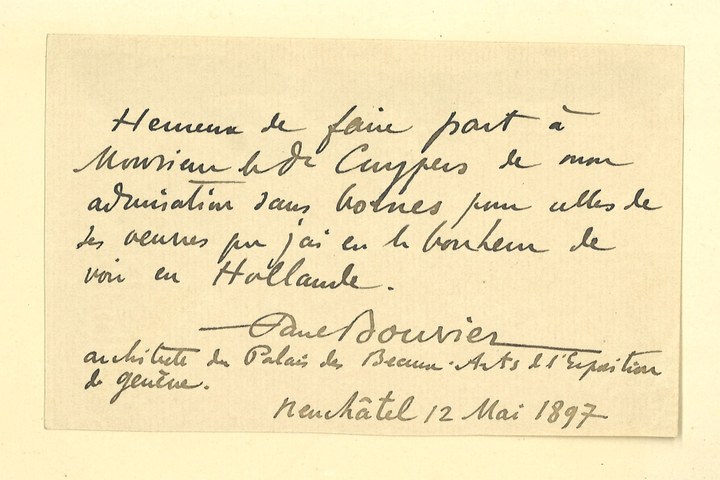 Heureux de faire part à
Monsieur le Dr Cuypers de mon
admiration sans bornes pour celles de
ses oeuvres que j'ai eu le bonheur de
voir en Hollande.
Paul Bouvier
architecte du Palais des Beaux-Arts de l'Exposition
de Genève.
Neuchâtel 12 Mai 1897